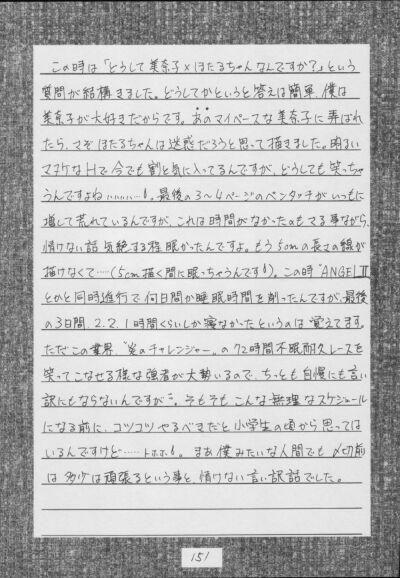 この時は「どうして美奈子×ほたるちゃんなんですか?」という
質問が結構きました。どうしてかというと答えは簡単、僕は
美奈子が大好きだからです。あのマイペースな美奈子に弄ばれ
たら、さぞほたるちゃんは迷惑だろうと思って描きました。明るい
マヌケなHで今でも割と気に入ってるんですが、どうしても笑っちゃ
うんですよね………。最後の3〜4ページのペンタッチがいつもに
増して荒れているんですが、これは時間がなかったのもさる事ながら、
情けない話気絶する程眠かったんですよ。もう5cmの長さの線が
描けなくて……(5cm描く間に眠っちゃうんです)。この時"ANGEL II"
とかと同時進行で何日間か睡眠時間を削ったんですが、最後
の3日間、2、2、1時間くらいしか寝なかったというのは覚えてます。
ただこの業界、"炎のチャレンジャー"の72時間不眠耐久レースを
笑ってこなせる様な強者が大勢いるので、ちっとも自慢にも言い
訳にもならないんですが。そもそもこんな無理なスケジュール
になる前に、コツコツやるべきだと小学生の頃から思っては
いるんですけど……トホホ。まあ僕みたいな人間でも〆切前
は多少は頑張るという事と、情けない言い訳話でした。
151